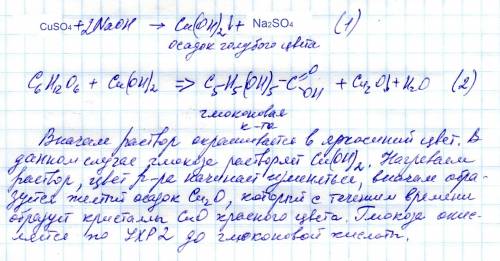 CuSO4+2NaOH → Cu(OH)2↓+ Na2SO4 (1)
осадок голубого цвета
C6H12O6 + Cu(OH)2 => C5H5(OH)5-C=O OH + Cu2O↓+H2O (2)
глюконовая
к-та
Вначале раствор окрашивается в яркосиний цвет. В
данном случае глюкоза растворяет Cu(OH)2. Нагреваем
раствор, цвет р-ра начинает изменяться, вначале обра-
зуется желтый осадок Cu2O, который с течением времени
образует кристаллы CuO красного цвета. Глюкоза окис-
ляется по УХР2 до глюконовой кислоты.